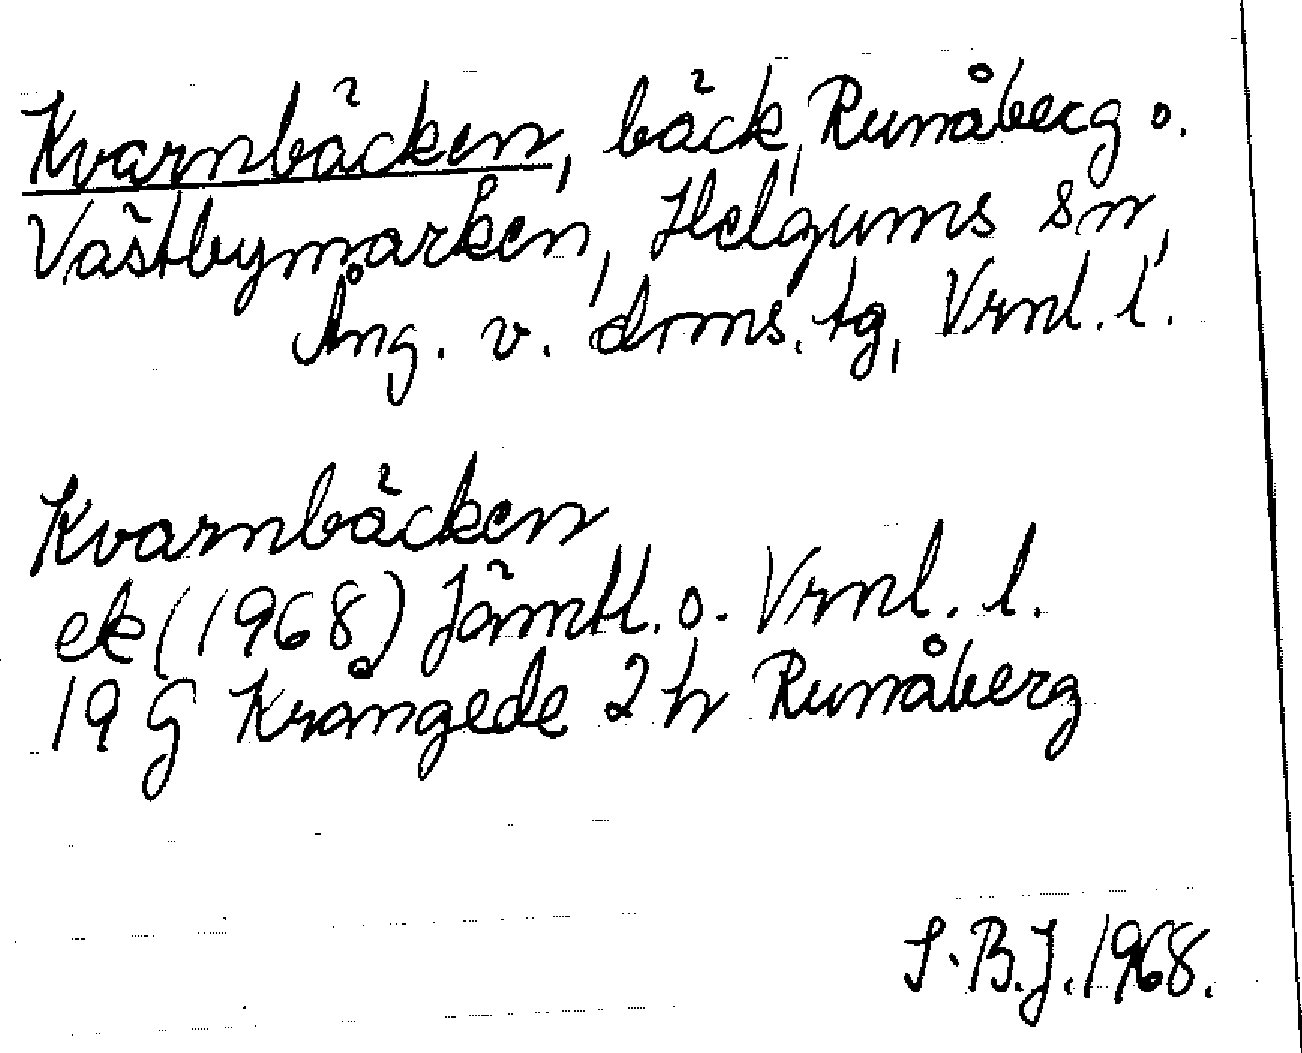 Kvarnbäcken, bäck, Runåberg o.
Västbymarken, Helgums sn,
Ång. v. doms. tg, Vrnl. l.
Kvarnbäcken
ek (1968) Jämtl. o. Vrnl. l.
19 G Krångede 2 h Runåberg
S.B.J. 1968.